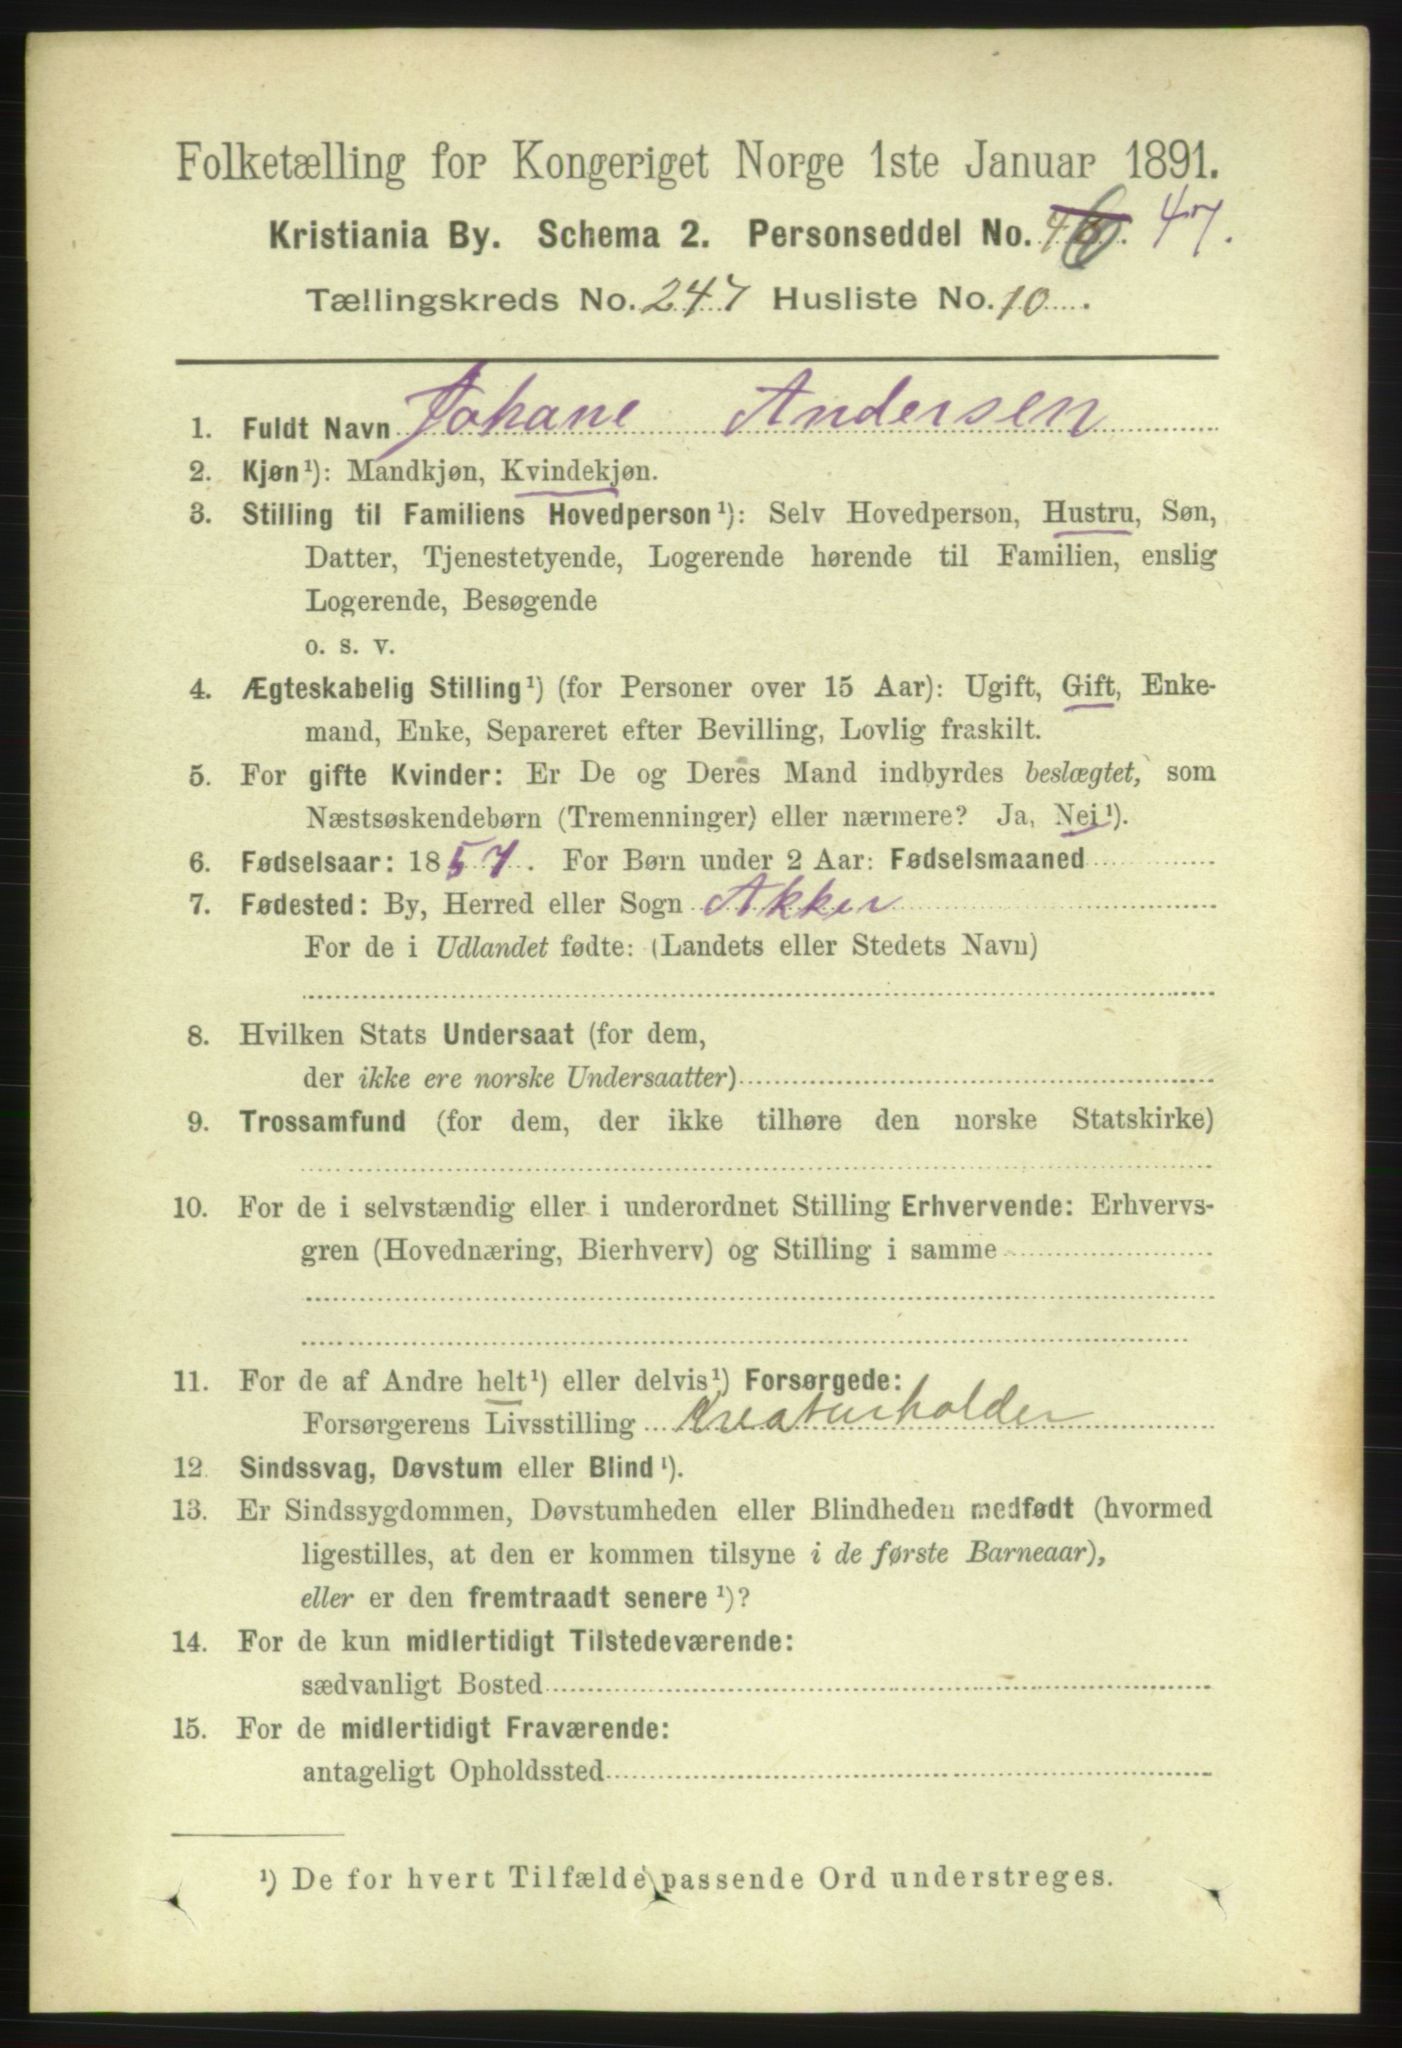 Folketælling for Kongeriget Norge 1ste Januar 1891.
Kristiania By. Schema 2. Personseddel No. 47.
Tællingskreds No. 247 Husliste No. 10.
1. Fuldt Navn Johane Andersen
2. Kjøn¹): Mandkjøn, Kvindekjøn.
3. Stilling til Familiens Hovedperson¹): Selv Hovedperson, Hustru, Søn,
Datter, Tjenestetyende, Logerende hørende til Familien, enslig
Logerende, Besøgende
o. s. v.
4. Ægteskabelig Stilling¹) (for Personer over 15 Aar): Ugift, Gift, Enke-
mand, Enke, Separeret efter Bevilling, Lovlig fraskilt.
5. For gifte Kvinder: Er De og Deres Mand indbyrdes beslægtet, som
Næstsøskendebørn (Tremenninger) eller nærmere? Ja, Nei¹).
6. Fødselsaar: 1857. For Børn under 2 Aar: Fødselsmaaned
7. Fødested: By, Herred eller Sogn Akker
For de i Udlandet fødte: (Landets eller Stedets Navn)
8. Hvilken Stats Undersaat (for dem,
der ikke ere norske Undersaatter)
9. Trossamfund (for dem, der ikke tilhøre den norske Statskirke)
10. For de i selvstændig eller i underordnet Stilling Erhvervende: Erhvervs-
gren (Hovednæring, Bierhverv) og Stilling i samme
11. For de af Andre helt¹) eller delvis¹) Forsørgede:
Forsørgerens Livsstilling Kreaturholder
12. Sindssvag, Døvstum eller Blind¹).
13. Er Sindssygdommen, Døvstumheden eller Blindheden medfødt (hvormed
ligestilles, at den er kommen tilsyne i de første Barneaar),
eller er den fremtraadt senere¹)?
14. For de kun midlertidigt Tilstedeværende:
sædvanligt Bosted
15. For de midlertidigt Fraværende:
antageligt Opholdssted
¹) De for hvert Tilfælde passende Ord understreges.